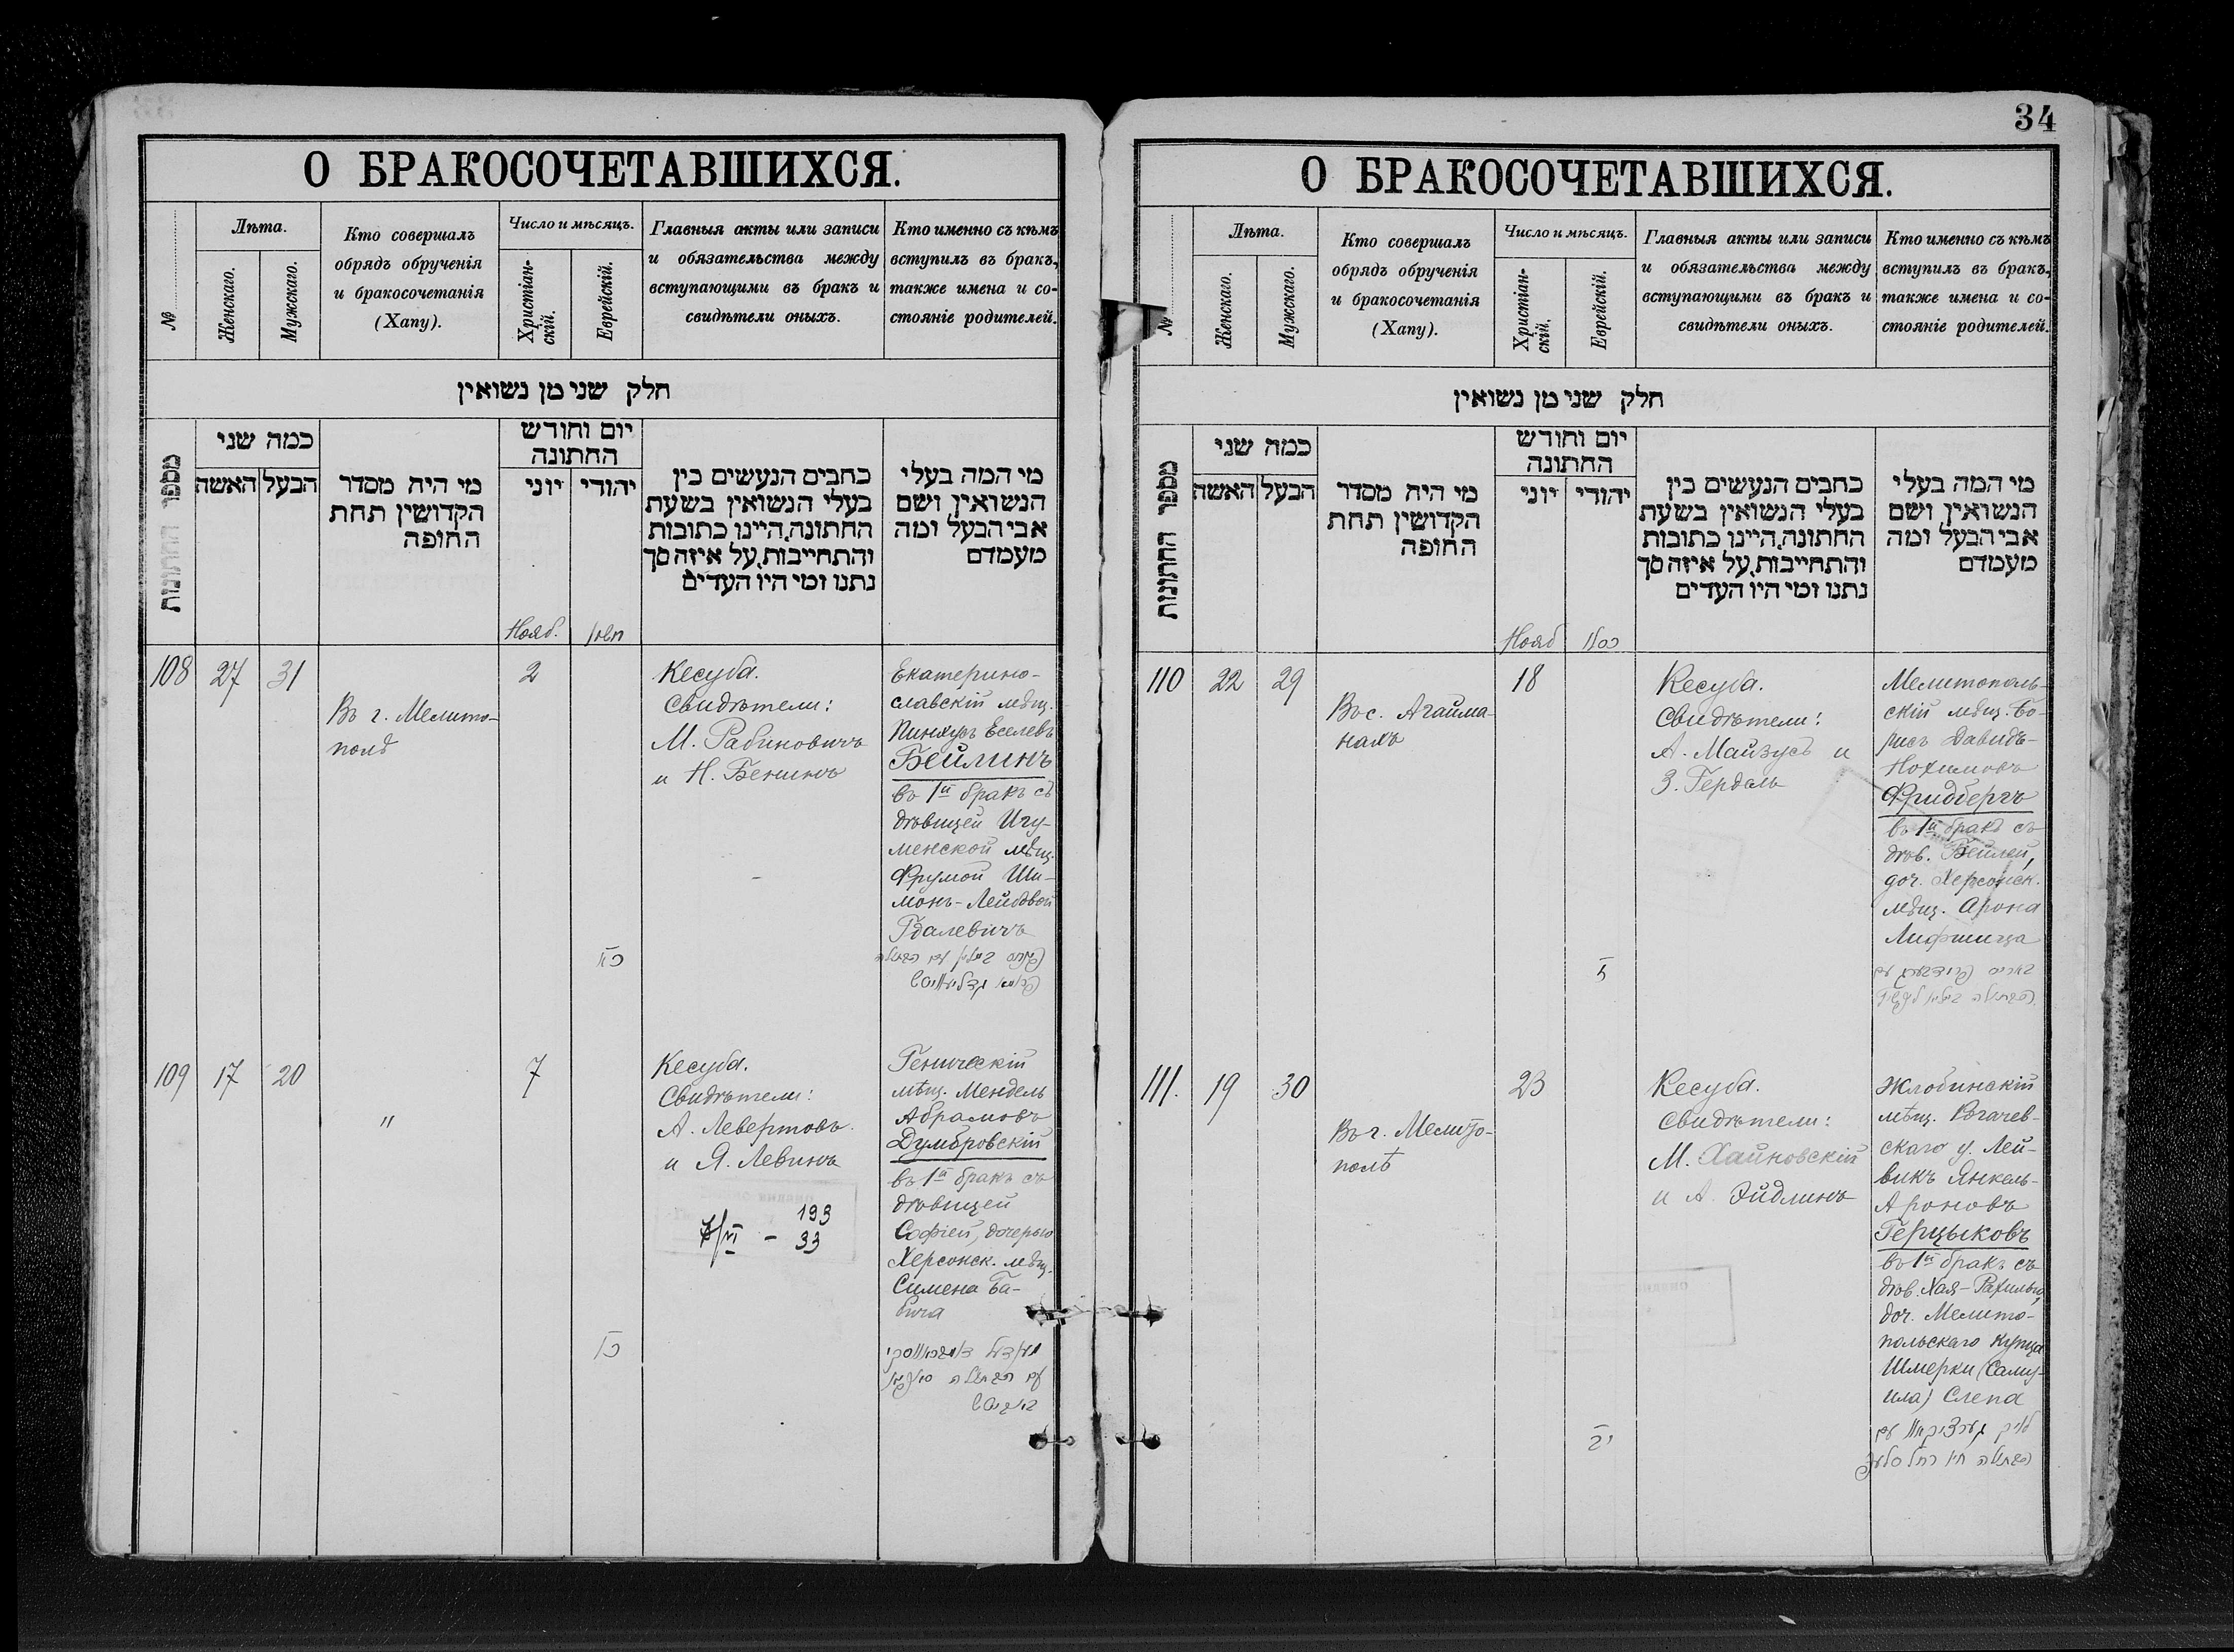 О БРАКОСОЧЕТАВШИХСЯ.
№
Лѣта.
Женскаго.
Мужскаго.
Кто совершалъ
обрядъ обрученія
и бракосочетанія
(Хапу).
Число и мѣсяцъ.
Христіан-
скій.
Еврейскій.
Главныя акты или записи
и обязательства между
вступающими въ бракъ и
свидѣтели оныхъ.
Кто именно съ кѣмъ
вступилъ въ бракъ,
также имена и со-
стояніе родителей.
חלק שני מן נשואין
מספר החתונות
כמה שני
האשה
הבעל
מי היה מסדר
הקדושין תחת
החופה
יום וחודש
החתונה
יוני
יהודי
כתבים הנעשים בין
בעלי הנשואין בשעת
החתונה, היינו כתובות
והתחייבות, על איזה סך
נתנו ומי היו העדים
מי המה בעלי
הנשואין ושם
אבי הבעל ומה
מעמדם
Нояб.
חשון
108
27
31
Въ г. Мелито-
полѣ
2
כח
Кесуба.
Свидѣтели:
М. Рабиновичъ
и Н. Бенинъ
Екатерино-
славскій мѣщ.
Пинхусъ Еселевъ
Бейлинъ
въ 1й бракъ съ
дѣвицей Игу-
менской мѣщ.
Фрумой Ши-
монъ-Лейбовой
Гдалевичъ
109
17
20
"
7
Кесуба.
Свидѣтели:
А. Левертовъ
и Я. Левинъ
193
33
Геническій
мѣщ. Мендель
Абрамовъ
Думбровскій
въ 1й бракъ съ
дѣвицей
Софіей, дочерью
Херсонск. мѣщ.
Симена Ба-
бича
34
О БРАКОСОЧЕТАВШИХСЯ.
№
Лѣта.
Женскаго.
Мужскаго.
Кто совершалъ
обрядъ обрученія
и бракосочетанія
(Хапу).
Число и мѣсяцъ.
Христіан-
скій.
Еврейскій.
Главныя акты или записи
и обязательства между
вступающими въ бракъ и
свидѣтели оныхъ.
Кто именно съ кѣмъ
вступилъ въ бракъ,
также имена и со-
стояніе родителей.
חלק שני מן נשואין
מספר החתונות
כמה שני
האשה
הבעל
מי היה מסדר
הקדושין תחת
החופה
יום וחודש
החתונה
יוני
יהודי
כתבים הנעשים בין
בעלי הנשואין בשעת
החתונה, היינו כתובות
והתחייבות, על איזה סך
נתנו ומי היו העדים
מי המה בעלי
הנשואין ושם
אבי הבעל ומה
מעמדם
Нояб
כסלו
110
22
29
Въ с. Агайма-
нахъ
18
Кесуба.
Свидѣтели:
А. Майзусъ и
З. Гердаль
Мелитополь-
скій мѣщ. Бо-
рисъ Давидъ-
Нохимовъ
Фридбергъ
въ 1й бракъ съ
дѣв. Бейлей,
доч. Херсонск.
мѣщ. Арона
Лифшица
111.
19
30
Въ г. Мелито-
полѣ
23
יב
Кесуба.
Свидѣтели:
М. Хайновскій
и А. Эйдлинъ
Жлобинскій
мѣщ. Рогачев-
скаго у. Лей-
викъ Янкель-
Ароновъ
Герцыковъ
въ 1й бракъ съ
дѣв. Хая-Рахилью,
доч. Мелито-
польскаго купца
Шмерки (Саму-
ила) Слепа